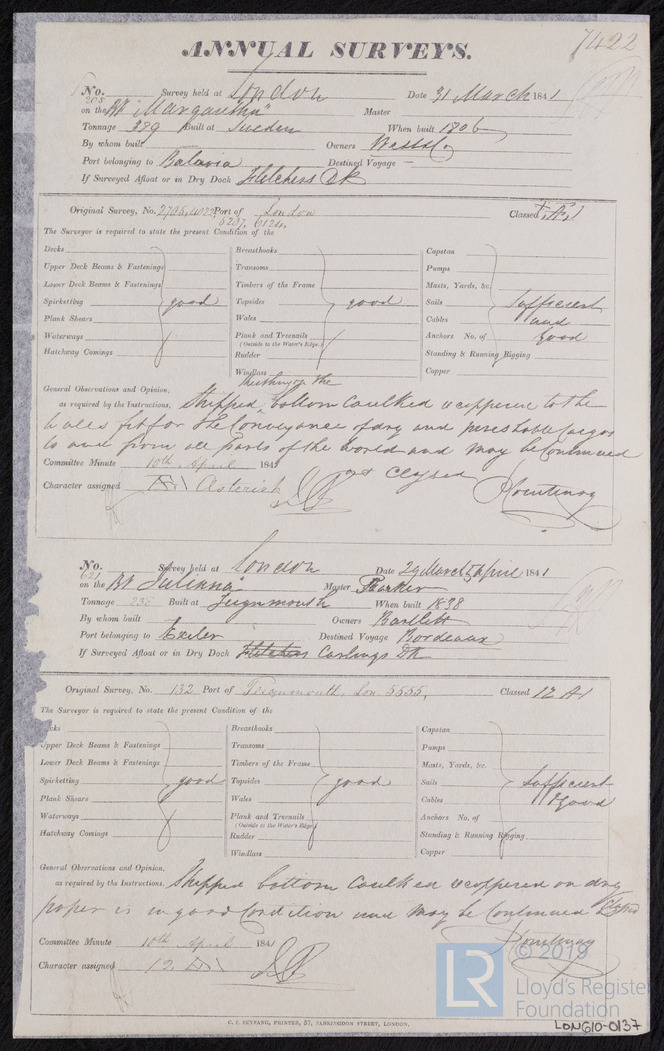 7422
ANNUAL SURVEYS.
No. Survey held at London Date 31 March 1841
205
on the Bk "Margaretha" Master
Tonnage 339 Built at Sweden When built 1806
By whom built Owners West & Co
Port belonging to Batavia Destined Voyage —
If Surveyed Afloat or in Dry Dock Fletchers Dk
Original Survey, No. 2705, 4022, Port of London Classed Æ1
5207, 6124,
The Surveyor is required to state the present Condition of the
Decks
Upper Deck Beams & Fastenings
Lower Deck Beams & Fastenings
Spirketting good
Plank Shears
Waterways
Hatchway Comings
Breasthooks
Transoms
Timbers of the Frame
Topsides good
Wales
Plank and Treenails
(Outside to the Water's Edge.)
Rudder
Windlass
Capstan
Pumps
Masts, Yards, &c.
Sails Sufficient
Cables and
Anchors No. of good
Standing & Running Rigging
Copper
General Observations and Opinion,
Sheathing on the
as required by the Instructions, Stripped bottom Caulked & coppered to the
Wales fit for the Conveyance of dry and perishable cargos
to and from all parts of the World and may be Continued
as Classed
Committee Minute 10th April 1841
Character assigned Æ1 Asterisk Courtenay
No. Survey held at London Date 29 March 5 April 1841
621
on the Bk "Julianna" Master Parker
Tonnage 238 Built at Teignmouth When built 1838
By whom built Owners Bartlett
Port belonging to Exeter Destined Voyage Bordeaux
If Surveyed Afloat or in Dry Dock Fletchers Curlings Dk
Original Survey, No. 132 Port of Teignmouth, Lon. 5555, Classed 12 A1
The Surveyor is required to state the present Condition of the
cks
Upper Deck Beams & Fastenings
Lower Deck Beams & Fastenings
Spirketting good
Plank Shears
Waterways
Hatchway Comings
Breasthooks
Transoms
Timbers of the Frame
Topsides good
Wales
Plank and Treenails
(Outside to the Water's Edge.)
Rudder
Windlass
Capstan
Pumps
Masts, Yards, &c.
Sails Sufficient
Cables & Good
Anchors No. of
Standing & Running Rigging
Copper
General Observations and Opinion,
as required by the Instructions, Stripped bottom Caulked & coppered on dry
paper is in good Condition and may be Continued as Classed
Committee Minute 10th April 1841 Courtenay
Character assigned 12 A1
C. F. SEYFANG, PRINTER, 57, FARRINGDON STREET, LONDON.
LR
© 2019
Lloyd's Register
Foundation
LON610-0137